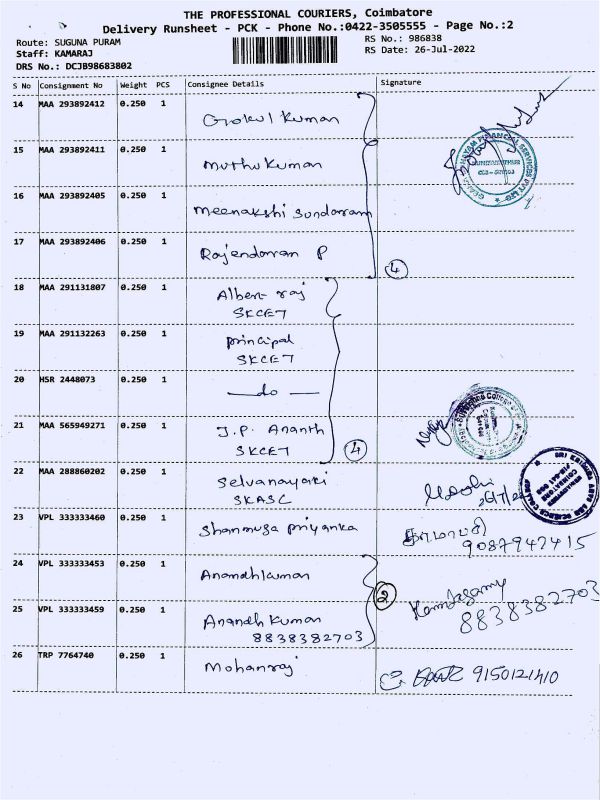 THE PROFESSIONAL COURIERS, Coimbatore
Delivery Runsheet - PCK - Phone No.:0422-3505555 - Page No.:2
Route: SUGUNA PURAM
RS No.: 986838
Staff: KAMARAJ
RS Date: 26-Jul-2022
DRS No.: DCJB98683802
S No Consignment No Weight PCS Consignee Details Signature
14 MAA 293892412 0.250 1 Gokul Kumar
15 MAA 293892411 0.250 1 Muthukumar
16 MAA 293892405 0.250 1 Meenakshi Sundarram
17 MAA 293892406 0.250 1 Rajendarran P
4
18 MAA 291131807 0.250 1 Albert raj
SKCET
19 MAA 291132263 0.250 1 principal
SKCET
20 HSR 2448073 0.250 1 —do—
21 MAA 565949271 0.250 1 J.P. Ananth
SKCET
4
22 MAA 288860202 0.250 1 Selvanayaki
SKASC
23 VPL 333333460 0.250 1 Shanmuga priyanka
9087947415
24 VPL 333333453 0.250 1 Anandhkumar
2
25 VPL 333333459 0.250 1 Anandh Kumar
8838382703
8838382703
26 TRP 7764740 0.250 1 Mohanraj
9150121410